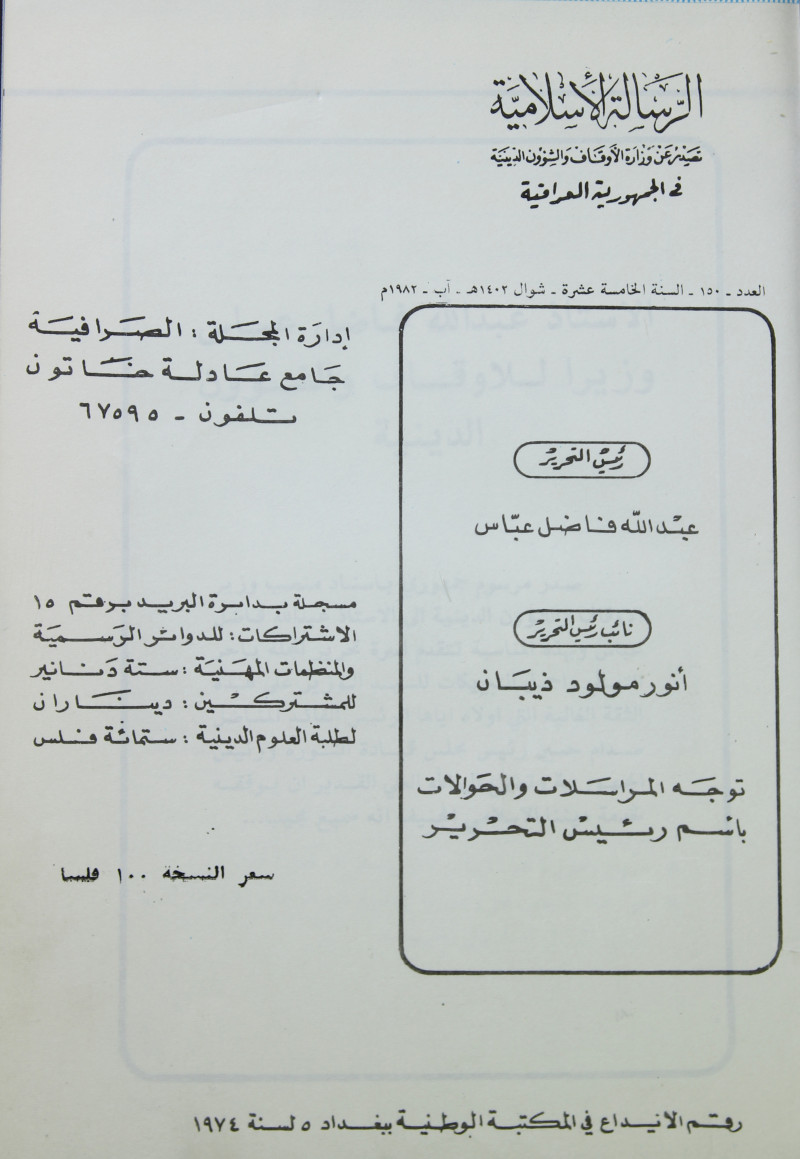 الرسالة الإسلامية
تصدر عن وزارة الأوقاف والشؤون الدينية
في الجمهورية العراقية
العدد ـ ١٥٠ ـ السنة الخامسة عشرة ـ شوال ١٤٠٢هـ ـ آب ـ ١٩٨٢م
رئيس التحرير
عبد الله فاضل عباس
نائب رئيس التحرير
أنور مولود ذيبان
توجه المراسلات والحوالات
باسم رئيس التحرير
إدارة المجلة : الصرافية
جامع عادلة خاتون
تلفون ـ ٦٧٥٩٥
مسجلة بدائرة البريد برقم ١٥
الاشتراكات : للدوائر الرسمية
والمنظمات المهنية : ستة دنانير
للمشتركين : ديناران
لطلبة العلوم الدينية : ستمائة فلس
سعر النسخة ١٠٠ فلسا
رقم الايداع في المكتبة الوطنية ببغداد ٥ لسنة ١٩٧٤